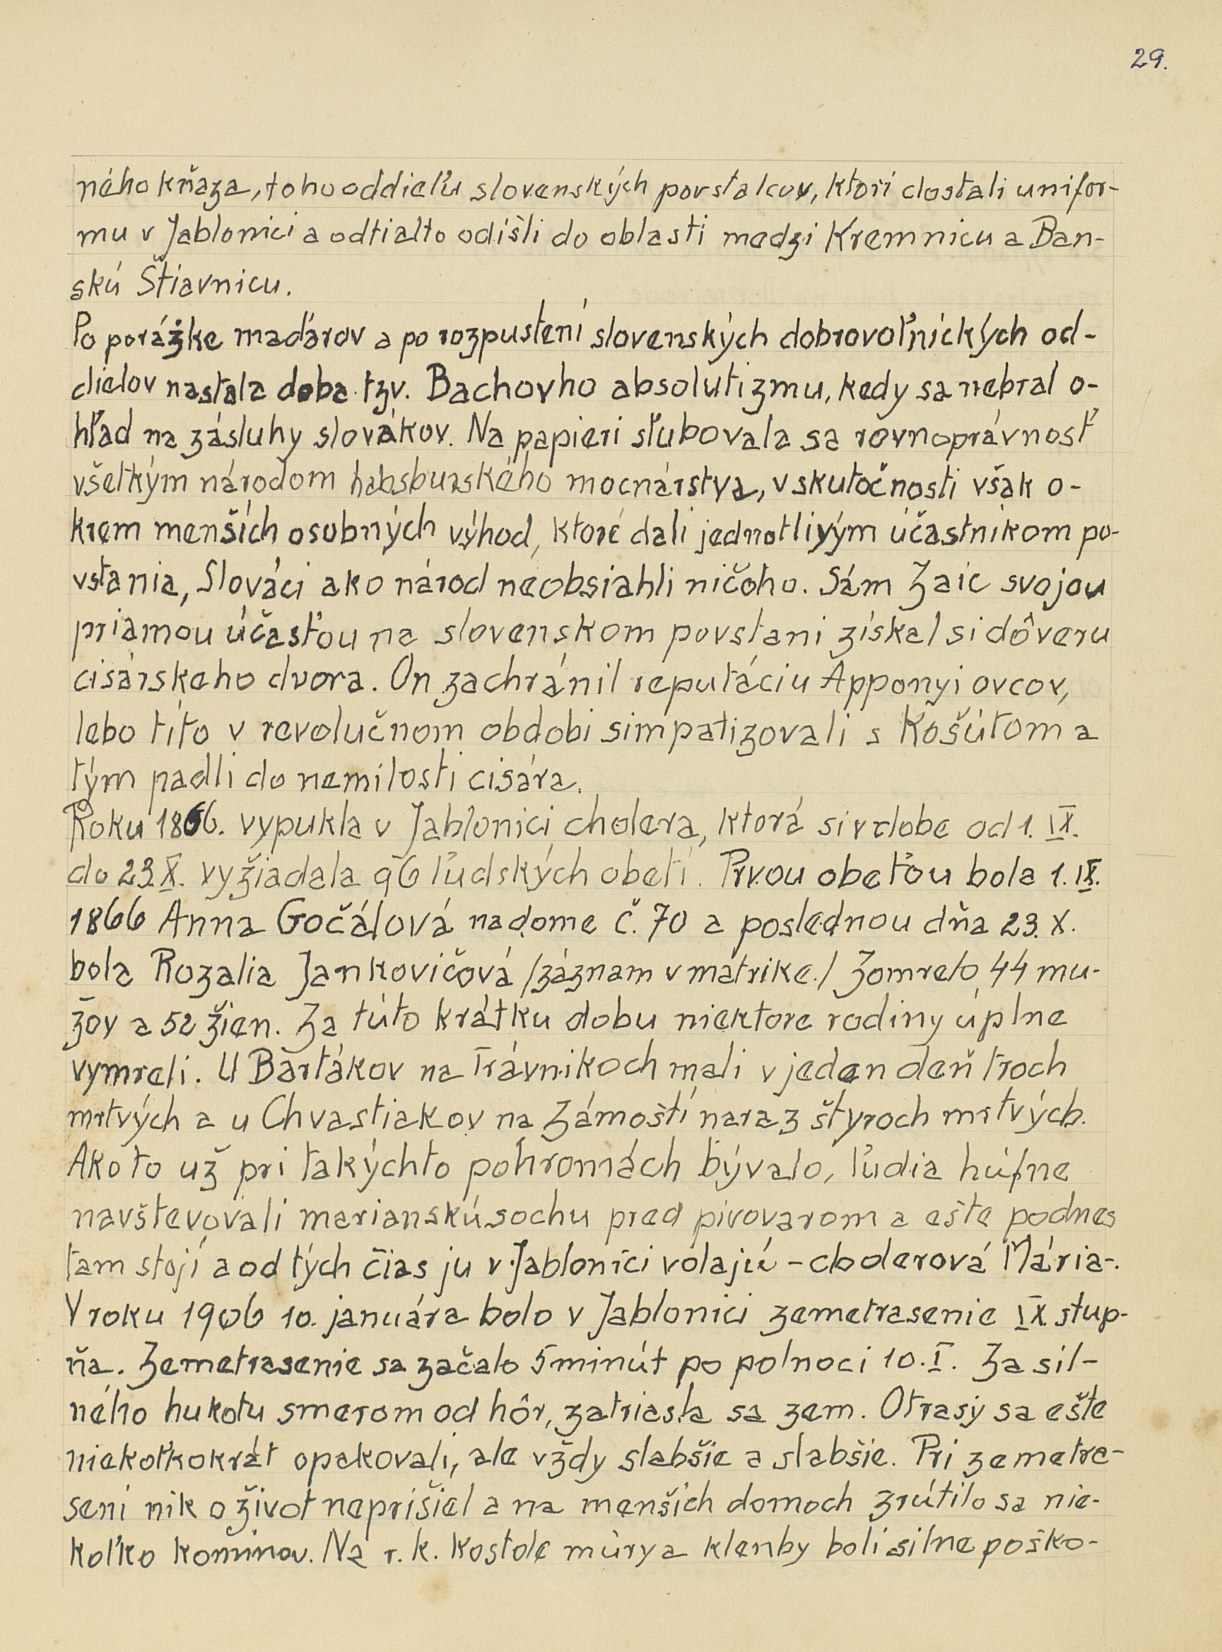 29.
ného kňaza, toho oddieľu slovenských povstalcov, ktorí dostali unifor-
mu v Jablonici a odtialto odišli do oblasti medzi Kremnicu a Ban-
skú Štiavnicu.
Po porážke maďárov a po rozpustení slovenských dobrovoľníckých od-
dielov nastala doba tzv. Bachovho absolutizmu, kedy sa nebral o-
hľad na zásluhy slovákov. Na papieri sľubovala sa rovnoprávnosť
všetkým národom habsburského mocnárstva, v skutočnosti však o-
krem menších osobných výhod, ktoré dali jednotlivým účastníkom po-
vstania, Slováci ako národ neobsiahli ničoho. Sám Zaic svojou
priamou účasťou na slovenskom povstaní získal si dôveru
cisárskeho dvora. On zachránil reputáciu Apponyiovcov,
lebo títo v revolučnom obdobi simpatizovali s Košútom a
tým padli do nemilosti cisára.
Roku 1866. vypukla v Jablonici cholera, ktorá si v dobe od 1. IX.
do 23.X. vyžiadala 96 ľudských obetí. Prvou obeťou bola 1. IX.
1866 Anna Gočálová na dome č. 70 a poslednou dňa 23. X.
bola Rozalia Jankovičová /záznam v mátrike./ Zomrelo 44 mu-
žov a 52 žien. Za túto krátku dobu niektore rodiny úplne
vymreli. U Bartákov na Trávnikoch mali v jeden deň troch
mrtvých a u Chvastiakov na Zámoští naraz štyroch mrtvých.
Ako to už pri takýchto pohromách bývalo, ľudia húfne
navštevovali marianskú sochu pred pivovarom a ešte podnes
tam stojí a od tých čias ju v Jablonici volajú - choderová Mária-.
V roku 1906 10. januára bolo v Jablonici zemetrasenie IX stup-
ňa. Zemetrasenie sa začalo 5 minút po polnoci 10. I. Za sil-
ného hukotu smerom od hôr, zatriasla sa zem. Otrasy sa ešte
niekoľkokrát opakovali, ale vždy slabšie a slabšie. Pri zemetra-
sení nik o život neprišiel a na menších domoch zrútilo sa nie-
koľko komínov. Na r. k. kostole múry a klenby boli silne poško-